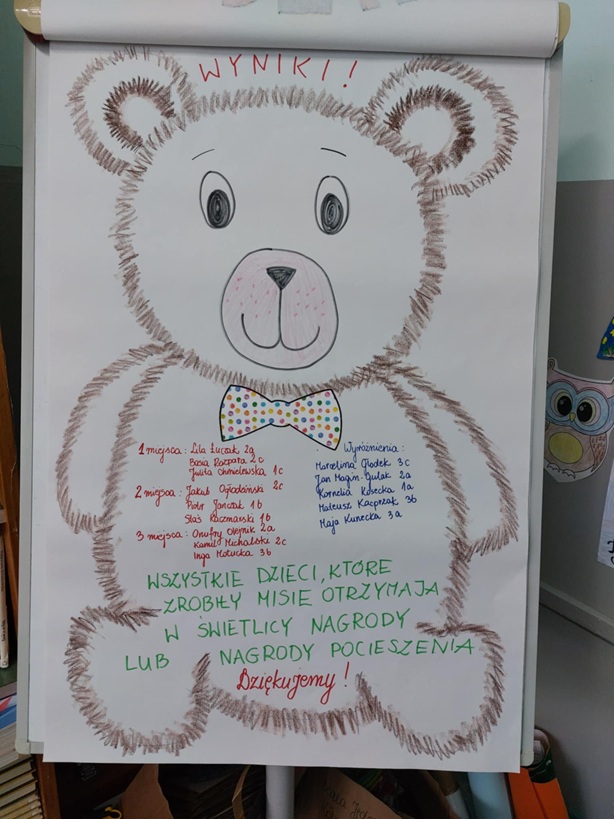 WYNIKI!
1 miejsca: Lila Łuczak 2a
Basia Rozpara 2c
Julita Chmielewska 1c
2 miejsca: Jakub 2c
Piotr Janczak 1b
Staś Kaczmarski 1b
3 miejsca: Onufry Olejnik 2a
Kamil Michalski 2c
Inga Motucka 3b
Wyróżnienia:
Marcelina Głodek 3c
Jan Magin-Gulak 2a
Kornelia Kosecka 1a
Mateusz Kacprzak 3b
Maja Kunecka 3a
WSZYSTKIE DZIECI, KTÓRE
ZROBIŁY MISIE OTRZYMAJĄ
W ŚWIETLICY NAGRODY
LUB NAGRODY POCIESZENIA
Dziękujemy!